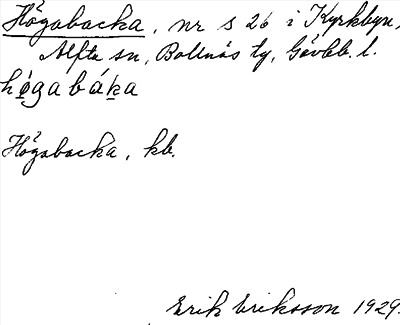 Högabacka, nr s 26 i Kyrkbyn,
Alfta sn, Bollnäs tg, Gävleb. l.
hǫ́gabáka
Högabacka, kb.
Erik Eriksson 1929.